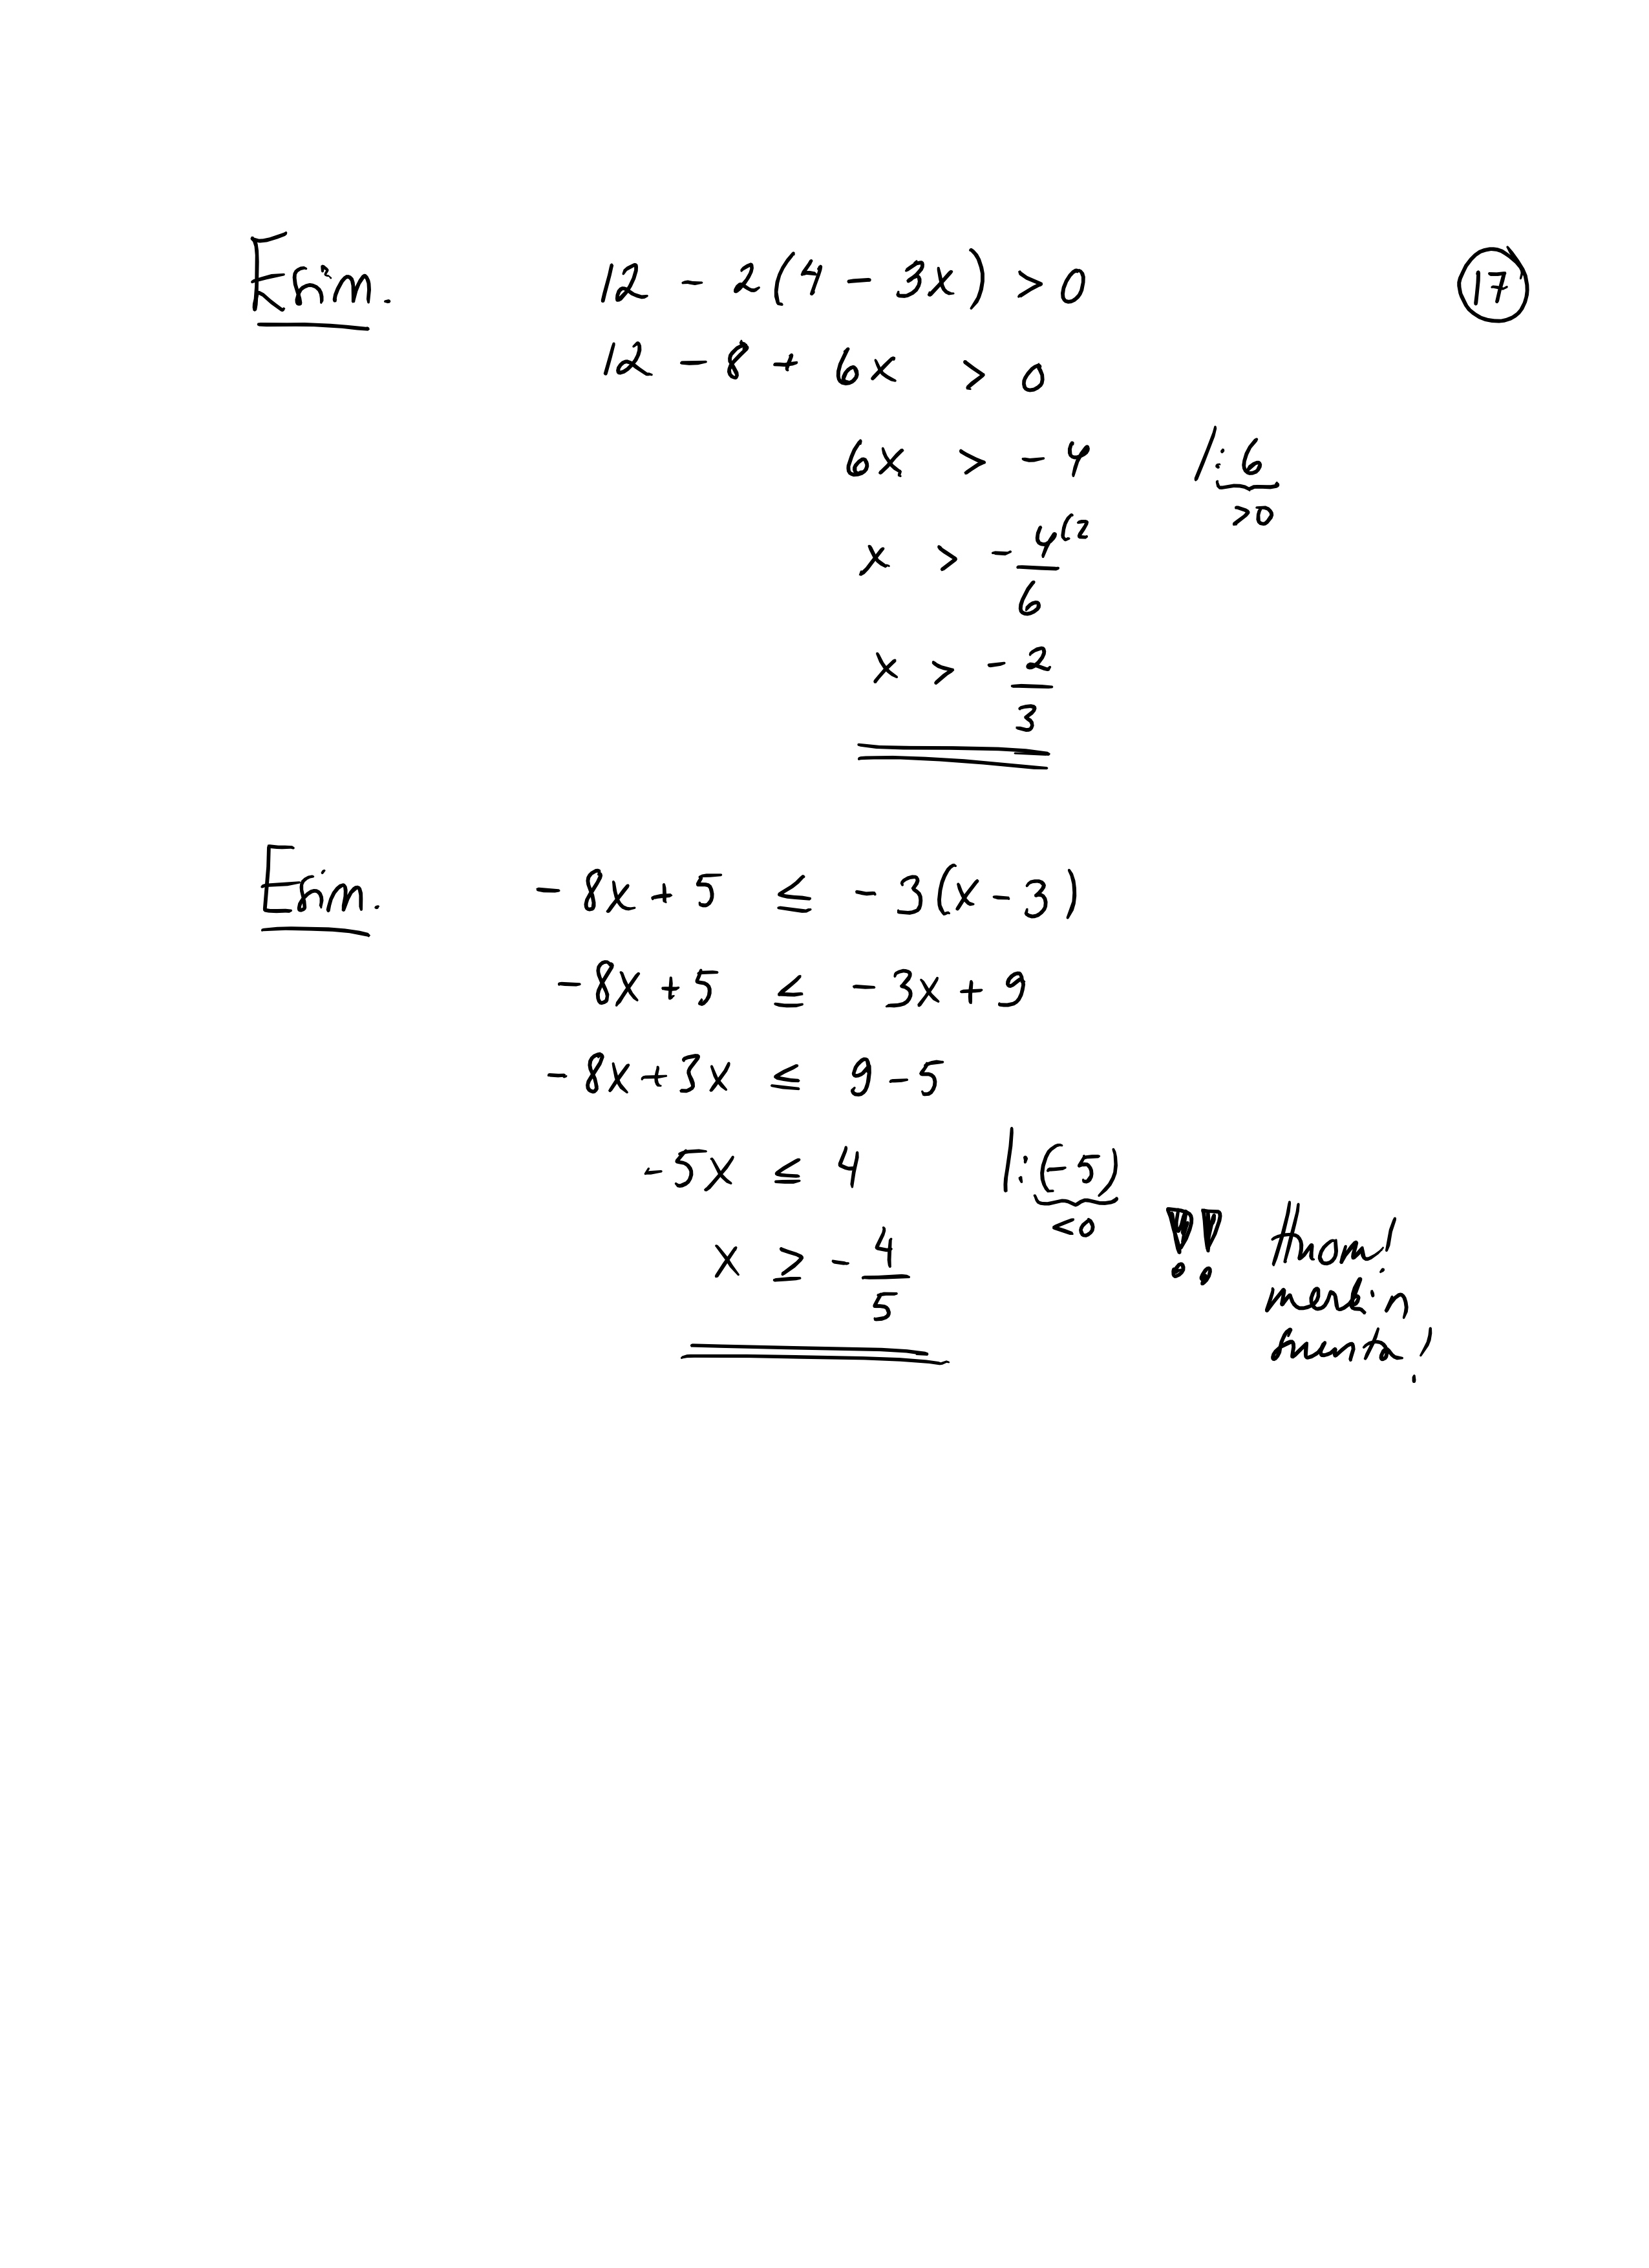 Esim. 12 - 2(4 - 3x) > 0 17
12 - 8 + 6x > 0
6x > - 4 |: 6
>0
x > - 4/6 (2
x > - 2/3
Esim. - 8x + 5 ≤ - 3(x - 3)
- 8x + 5 ≤ - 3x + 9
- 8x + 3x ≤ 9 - 5
- 5x ≤ 4 |: (- 5)
<0 !! Huom!
x ≥ - 4/5 merkin
suunta!